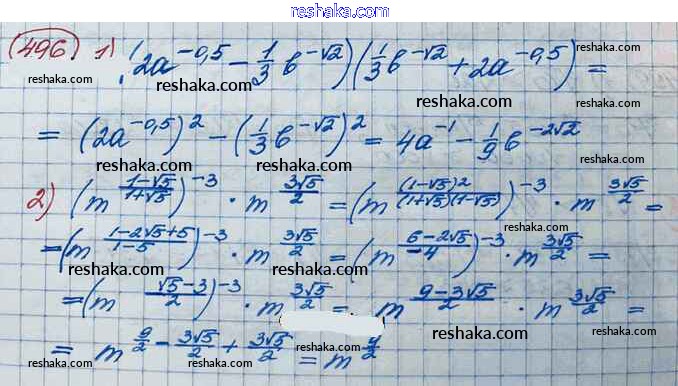 reshaka.com
496 1) (2a^{-0,5} - \frac{1}{3} b^{-\sqrt{2}}) (\frac{1}{3} b^{-\sqrt{2}} + 2a^{-0,5}) =
reshaka.com reshaka.com reshaka.com
= (2a^{-0,5})^2 - (\frac{1}{3} b^{-\sqrt{2}})^2 = 4a^{-1} - \frac{1}{9} b^{-2\sqrt{2}}
reshaka.com reshaka.com reshaka.com
2) (m^{\frac{1-\sqrt{5}}{1+\sqrt{5}}})^{-3} · m^{\frac{3\sqrt{5}}{2}} = (m^{\frac{(1-\sqrt{5})^2}{(1+\sqrt{5})(1-\sqrt{5})}})^{-3} · m^{\frac{3\sqrt{5}}{2}} =
reshaka.com reshaka.com reshaka.com
= (m^{\frac{1-2\sqrt{5}+5}{1-5}})^{-3} · m^{\frac{3\sqrt{5}}{2}} = (m^{\frac{6-2\sqrt{5}}{-4}})^{-3} · m^{\frac{3\sqrt{5}}{2}} =
reshaka.com reshaka.com reshaka.com
= (m^{\frac{\sqrt{5}-3}{2}})^{-3} · m^{\frac{3\sqrt{5}}{2}} = m^{\frac{9-3\sqrt{5}}{2}} · m^{\frac{3\sqrt{5}}{2}} =
reshaka.com reshaka.com reshaka.com
= m^{\frac{9}{2} - \frac{3\sqrt{5}}{2} + \frac{3\sqrt{5}}{2}} = m^{\frac{9}{2}}
reshaka.com reshaka.com reshaka.com
reshaka.com